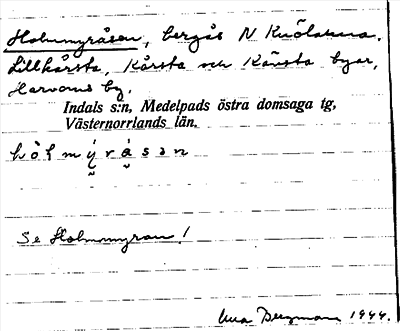 Holmmyråsen, bergås N Knölarna.
Lillkårsta, Kårsta och Kånsta byar,
Harvoms by.
Indals s:n, Medelpads östra domsaga tg,
Västernorrlands län.
Se Holmmyran!
Bergman 1944.